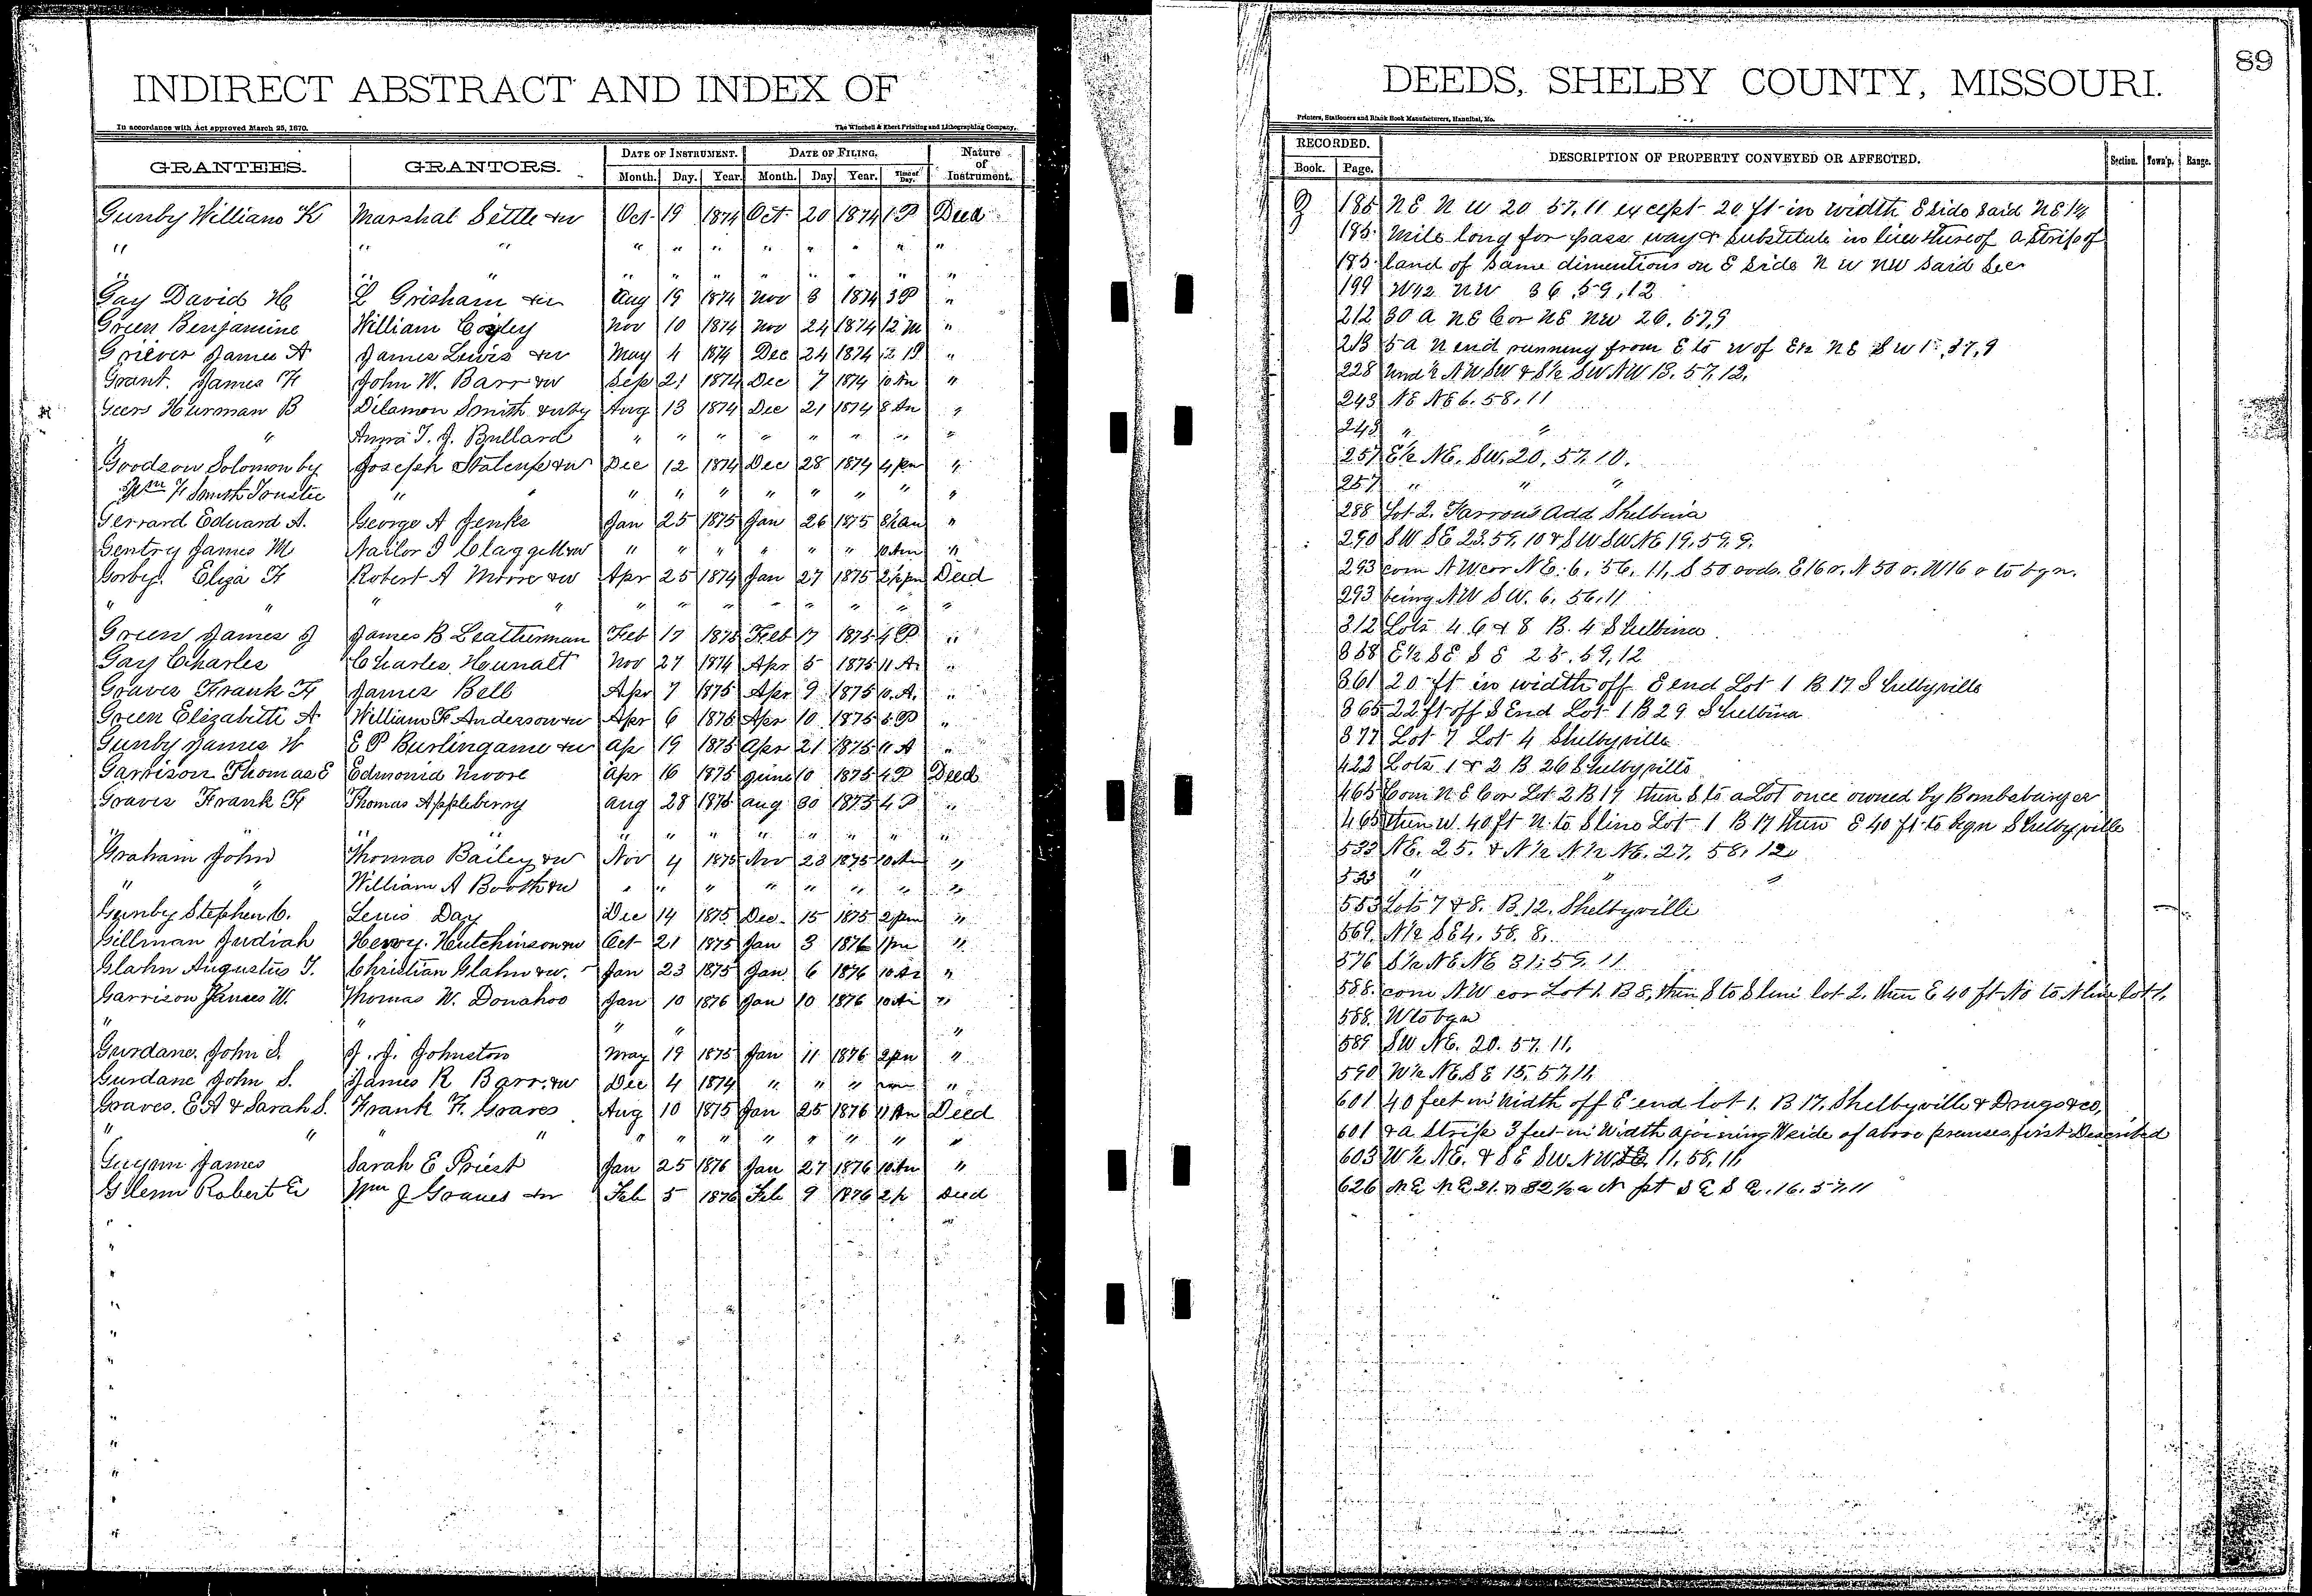 INDIRECT ABSTRACT AND INDEX OF
In accordance with Act approved March 25, 1870.
The Winchell & Ebert Printing and Lithographing Company,
GRANTEES. GRANTORS. DATE OF INSTRUMENT. DATE OF FILING. Nature of Instrument.
Month. Day. Year. Month. Day Year. Time of Day.
Gunby William K Marshal Settle &w Oct 19 1874 Oct 20 1874 1 P Deed
" " " " " " " " " " "
" " " " " " " " " " "
Gay David H L Grisham &w Aug 19 1874 Nov 3 1874 3 P "
Green Benjamine William Cooley Nov 10 1874 Nov 24 1874 12 M "
Griever James A James Lewis &w May 4 1874 Dec 24 1874 12 P "
Grant. James H John W. Barr &w Sep 21 1874 Dec 7 1874 10 Am "
Geer Hurman B Dilamon Smith &w by Aug 13 1874 Dec 21 1874 8 Am "
" " Anna T. J. Bullard " " " " " " " "
Goodson Solomon by Joseph Stalcup &w Dec 12 1874 Dec 28 1874 4 pm "
Wm H Smith Trustee " " " " " " " " " "
Gerrard Edward A. George A Jenks Jan 25 1875 Jan 26 1875 8½ am "
Gentry James M Nailor I Claggett &w " " " " " " 10 Am "
Gorby. Eliza H Robert A Moore &w Apr 25 1874 Jan 27 1875 2½ pm Deed
" " " " " " " " " " " "
Green James J James B Leatherman Feb 17 1875 Feb 17 1875 4 P "
Gay Charles Charles Hunalt Nov 27 1874 Apr 5 1875 11 A. "
Graves Frank H James Bell Apr 7 1875 Apr 9 1875 10. A. "
Green Elizabeth A William F Anderson &w Apr 6 1875 Apr 10 1875 5 P "
Gunby James W E P Burlingame &w Ap 19 1875 Apr 21 1875 11 A "
Garrison Thomas E Edmonia Moore Apr 16 1875 June 10 1875 4 P Deed
Graves Frank H Thomas Appleberry Aug 28 1875 Aug 30 1875 4 P "
" " " " " " " " " "
Graham John Thomas Bailey &w Nov 4 1875 Nov 23 1875 10 Am "
" " William A Booth &w " " " " " " " "
Gunby Stephen C. Lewis Day Dec 14 1875 Dec. 15 1875 2 pm "
Gillman Judiah Henry. Hutchinson &w Oct 21 1875 Jan 3 1876 1 pm "
Glahn Augustus T. Christian Glahn &w. Jan 23 1875 Jan 6 1876 10 Am "
Garrison James W. Thomas W. Donahoo Jan 10 1876 Jan 10 1876 10 Am "
" " " " "
Gurdane. John S. J. J. Johnston May 19 1875 Jan 11 1876 2 pm "
Gurdane John S. James R Barr. &w Dec 4 1874 " " " "
Graves. E A & Sarah S. Frank H. Graves Aug 10 1875 Jan 25 1876 11 Am Deed
" " " " " " " " " " "
Guynn James Sarah E Priest Jan 25 1876 Jan 27 1876 10 Am "
Glenn Robert E Wm J Graves &w Feb 5 1876 Feb 9 1876 2 p Deed
89
DEEDS, SHELBY COUNTY, MISSOURI.
Printers, Stationers and Blank Book Manufacturers, Hannibal, Mo.
RECORDED. DESCRIPTION OF PROPERTY CONVEYED OR AFFECTED. Section. Town'p. Range.
Book. Page.
185 NE NW 20 57, 11 except 20 ft in width E side said NE 1/4
185 Mile long for pass way & substitute in lieu thereof a strip of
185 land of same dimentions on E side NW NW said Sec
199 W½ NW 36, 59, 12
212 30 A NE Cor NE NW 26. 57, 9
213 5 a N end running from E to W of E½ NE SW 57, 9
228 Und ½ NW SW & S½ SW NW 13. 57, 12,
243 NE NE 6. 58, 11
243 " "
257 E½ NE. SW. 20, 57, 10.
257 " " "
288 Lot 2. Farrows Add Shelbina
290 SW SE 23. 59, 10 & SW SW NE 19, 59, 9.
293 com NW cor NE. 6, 56, 11, S 50 rods. E 16 r. N 50 r. W 16 r to bgn.
293 being NW SW. 6, 56, 11
312 Lots 4 6 & 8 B. 4 Shelbina
358 E½ SE SE 25. 59, 12
361 20 ft in width off E end Lot 1 B 17 Shelbyville
365 22 ft off S End Lot 1 B 29 Shelbina
377 Lot 7 Lot 4 Shelbyville
422 Lots 1 & 2 B 26 Shelbyville
465 Com NE Cor Lot 2 B 17 then S to a Lot once owned by Bombabarger
465 then W 40 ft N. to S line Lot 1 B 17 then E 40 ft to bgn Shelbyville
533 NE. 25. & N½ N½ NE. 27, 58, 12
533 " " "
553 Lots 7 & 8. B. 12. Shelbyville
569. N½ SE 4, 58. 8,
576 S½ NE NE 31, 59, 11
588. com NW cor Lot 1. B 8, then S to S line lot 2, then E 40 ft No to N line lot 1,
588. W to bgn
589 SW NE. 20. 57, 11,
590 W½ NE SE 15, 57, 11,
601 40 feet in width off E end lot 1. B 17. Shelbyville & Drugs &co,
601 & a Strip 3 feet in Width ajoining W side of above premises first Described
603 W½ NE. & SE SW NW 11, 58, 11,
626 NE NE 21. & 32½ a N pt SE SE. 16. 57, 11